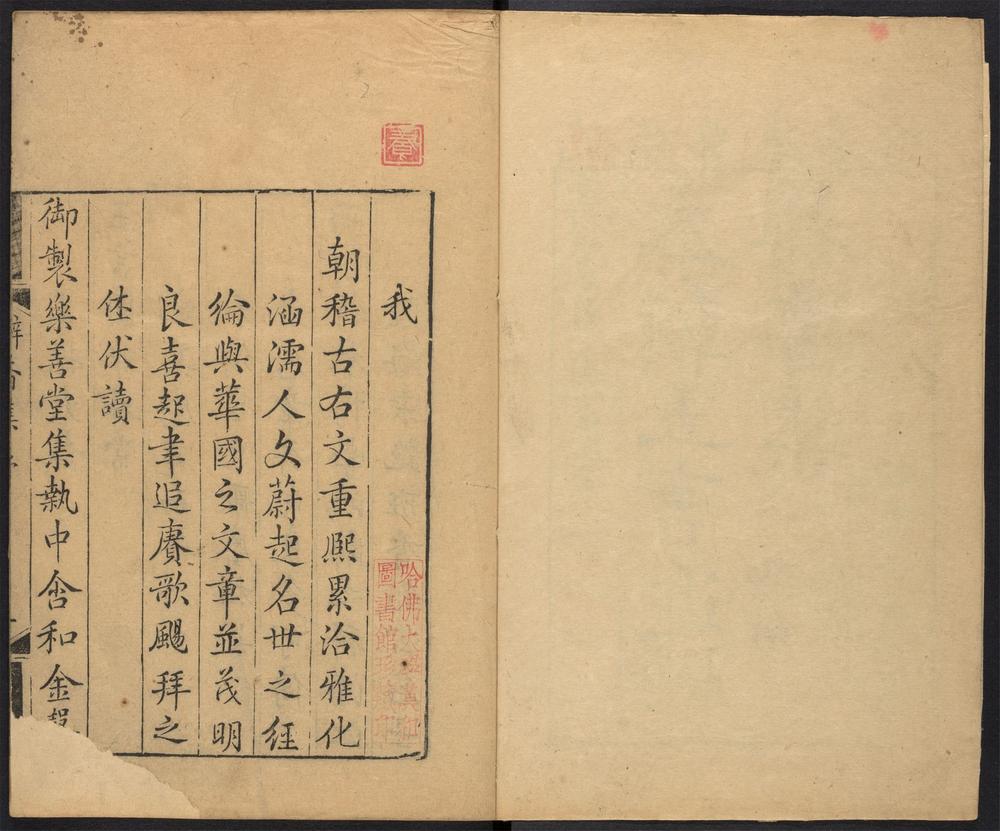 養
我
朝稽古右文重熙累洽雅化
涵濡人文蔚起名世之經
綸與華國之文章並茂明
良喜起聿追賡歌颺拜之
休伏讀
御製樂善堂集執中含和金
哈佛大學漢和
圖書館珍藏印